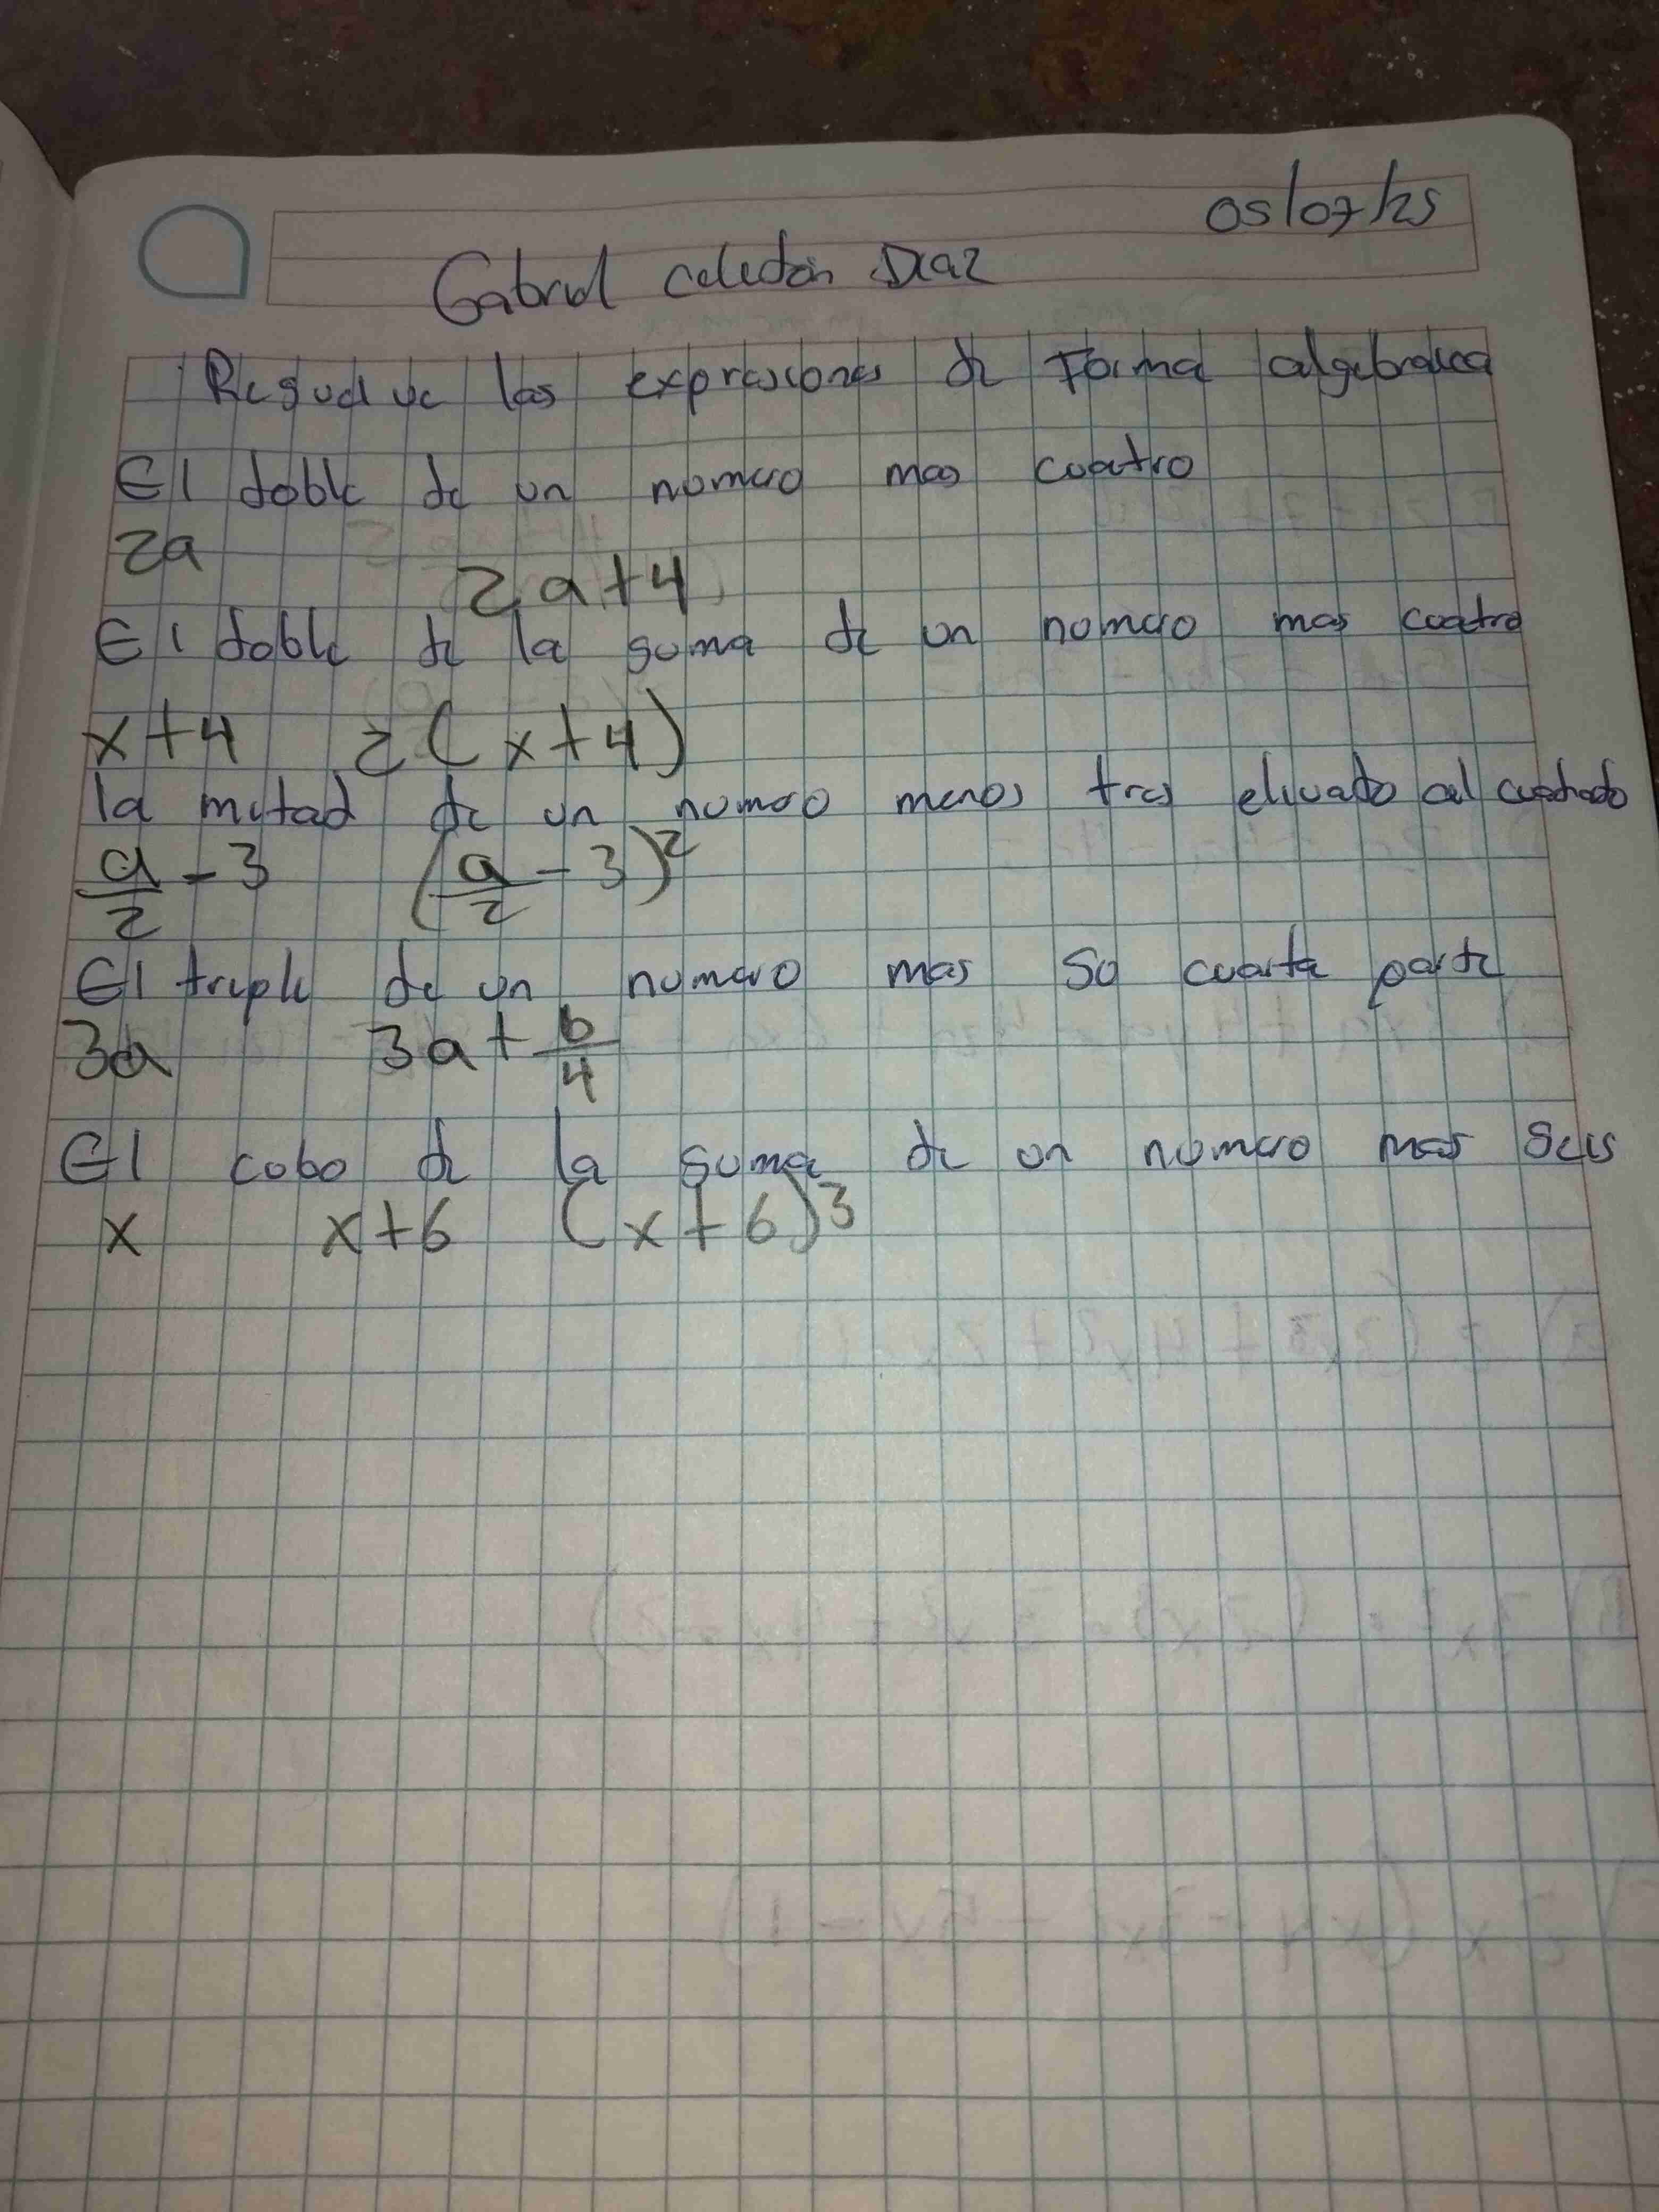 05/07/25
Gabriel celedon Diaz
Resuelve las expresiones de Forma algebraica
El doble de un numero mas cuatro
2a
2a+4
El doble de la suma de un numero mas cuatro
x+4 2(x+4)
la mitad de un numero menos tres elevado al cuadrado
a/2 - 3 (a/2 - 3)²
El triple de un numero mas su cuarta parte
3a 3a + b/4
El cubo de la suma de un numero mas seis
x x+6 (x+6)³